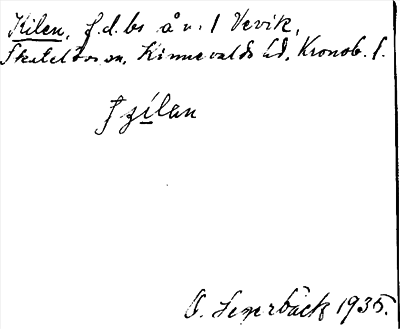 Kilen, f.d. bs å n:1 Vevik,
Skatelövs sn, Kinnevalds hd, Kronob. l.
ſʒílan
O. Lenerbäck 1935.